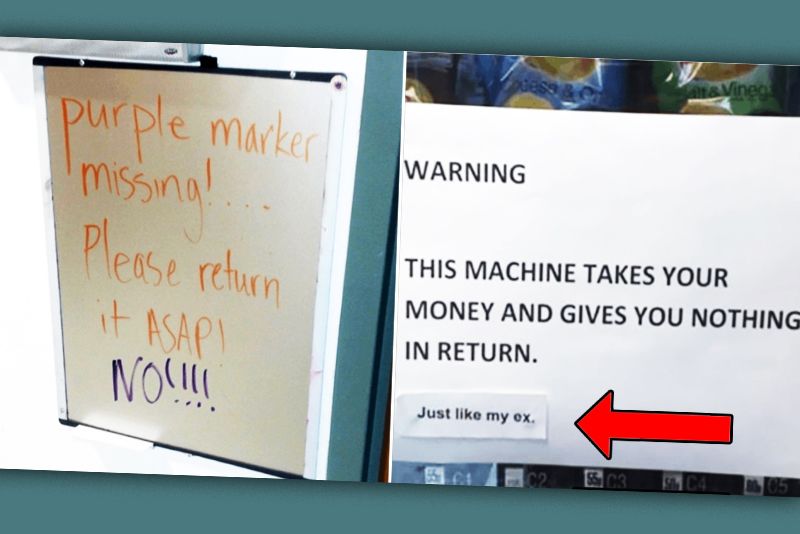 purple marker
missing!....
Please return
it ASAP!
NO!!!!
& Vinegar
WARNING
THIS MACHINE TAKES YOUR
MONEY AND GIVES YOU NOTHING
IN RETURN.
Just like my ex.
C1
C2
C3
C4
C5